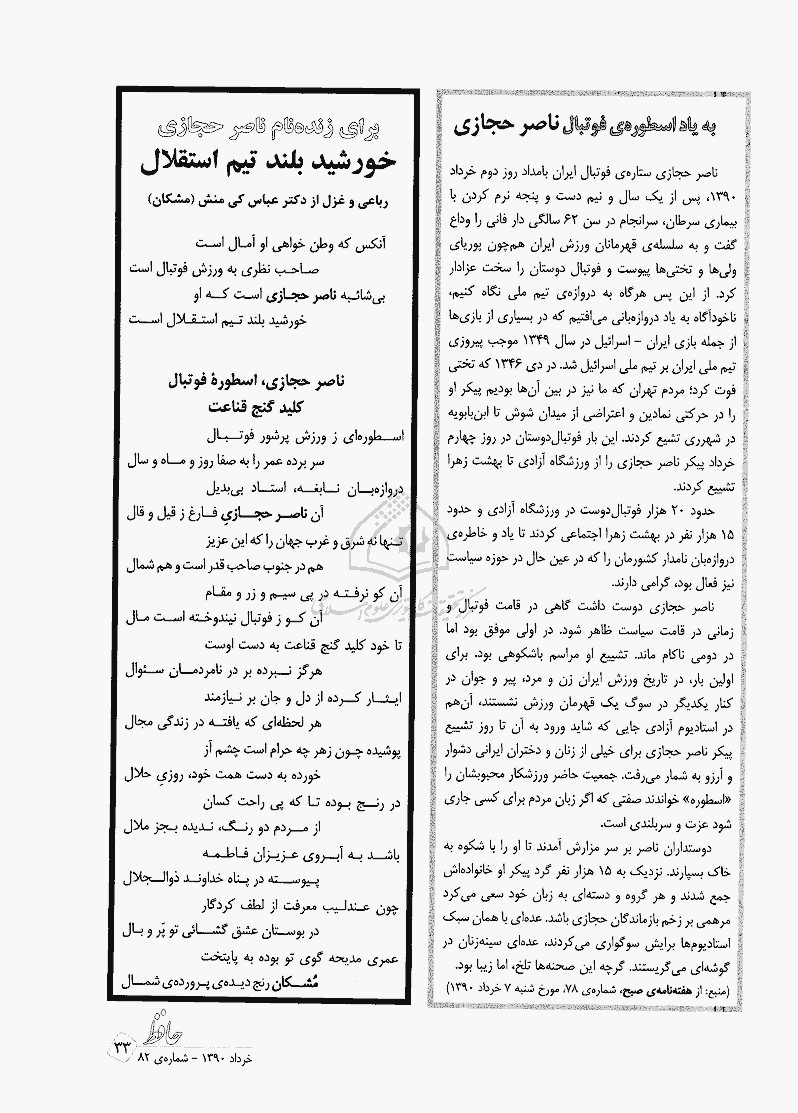 به یاد اسطوره‌ی فوتبال ناصر حجازی
ناصر حجازی ستاره‌ی فوتبال ایران بامداد روز دوم خرداد
۱۳۹۰، پس از یک سال و نیم دست و پنجه نرم کردن با
بیماری سرطان، سرانجام در سن ۶۲ سالگی دار فانی را وداع
گفت و به سلسله‌ی قهرمانان ورزش ایران هم‌چون پوریای
ولی‌ها و تختی‌ها پیوست و فوتبال دوستان را سخت عزادار
کرد. از این پس هرگاه به دروازه‌ی تیم ملی نگاه کنیم،
ناخودآگاه به یاد دروازه‌بانی می‌افتیم که در بسیاری از بازی‌ها
از جمله بازی ایران - اسرائیل در سال ۱۳۴۹ موجب پیروزی
تیم ملی ایران بر تیم ملی اسرائیل شد. در دی ۱۳۴۶ که تختی
فوت کرد؛ مردم تهران که ما نیز در بین آن‌ها بودیم پیکر او
را در حرکتی نمادین و اعتراضی از میدان شوش تا ابن‌بابویه
در شهرری تشیع کردند. این بار فوتبال‌دوستان در روز چهارم
خرداد پیکر ناصر حجازی را از ورزشگاه آزادی تا بهشت زهرا
تشییع کردند.
حدود ۲۰ هزار فوتبال‌دوست در ورزشگاه آزادی و حدود
۱۵ هزار نفر در بهشت زهرا اجتماعی کردند تا یاد و خاطره‌ی
دروازه‌بان نامدار کشورمان را که در عین حال در حوزه سیاست
نیز فعال بود، گرامی دارند.
ناصر حجازی دوست داشت گاهی در قامت فوتبال و
زمانی در قامت سیاست ظاهر شود. در اولی موفق بود اما
در دومی ناکام ماند. تشییع او مراسم باشکوهی بود. برای
اولین بار، در تاریخ ورزش ایران زن و مرد، پیر و جوان در
کنار یکدیگر در سوگ یک قهرمان ورزش نشستند، آن‌هم
در استادیوم آزادی جایی که شاید ورود به آن تا روز تشییع
پیکر ناصر حجازی برای خیلی از زنان و دختران ایرانی دشوار
و آرزو به شمار می‌رفت. جمعیت حاضر ورزشکار محبوبشان را
«اسطوره» خواندند صفتی که اگر زبان مردم برای کسی جاری
شود عزت و سربلندی است.
دوستداران ناصر بر سر مزارش آمدند تا او را با شکوه به
خاک بسپارند. نزدیک به ۱۵ هزار نفر گرد پیکر او خانواده‌اش
جمع شدند و هر گروه و دسته‌ای به زبان خود سعی می‌کرد
مرهمی بر زخم بازماندگان حجازی باشد. عده‌ای با همان سبک
استادیوم‌ها برایش سوگواری می‌کردند، عده‌ای سینه‌زنان در
گوشه‌ای می‌گریستند. گرچه این صحنه‌ها تلخ، اما زیبا بود.
(منبع: از هفته‌نامه‌ی صبح، شماره‌ی ۷۸، مورخ شنبه ۷ خرداد ۱۳۹۰)
برای زنده‌نام ناصر حجازی
خورشید بلند تیم استقلال
رباعی و غزل از دکتر عباس کی منش (مشکان)
آنکس که وطن خواهی او آمال است
صاحب نظری به ورزش فوتبال است
بی‌شائبه ناصر حجازی است که او
خورشید بلند تیم استقلال است
ناصر حجازی، اسطورهٔ فوتبال
کلید گنج قناعت
اسطوره‌ای ز ورزش پرشور فوتبال
سر برده عمر را به صفا روز و ماه و سال
دروازه‌بان نابغه، استاد بی‌بدیل
آن ناصر حجازیِ فارغ ز قیل و قال
تنها نه شرق و غرب جهان را که این عزیز
هم در جنوب صاحب قدر است و هم شمال
آن کو نرفته در پی سیم و زر و مقام
آن کو ز فوتبال نیندوخته است مال
تا خود کلید گنج قناعت به دست اوست
هرگز نبرده بر در نامردمان سئوال
ایثار کرده از دل و جان بر نیازمند
هر لحظه‌ای که یافته در زندگی مجال
پوشیده چون زهر چه حرام است چشم آز
خورده به دست همت خود، روزیِ حلال
در رنج بوده تا که پی راحت کسان
از مردم دو رنگ، ندیده بجز ملال
باشد به آبروی عزیزان فاطمه
پیوسته در پناه خداوند ذوالجلال
چون عندلیب معرفت از لطف کردگار
در بوستان عشق گشائی تو پَر و بال
عمری مدیحه گوی تو بوده به پایتخت
مُشکان رنج دیده‌ی پرورده‌ی شمال
حافظ
۳۳
خرداد ۱۳۹۰ - شماره‌ی ۸۲